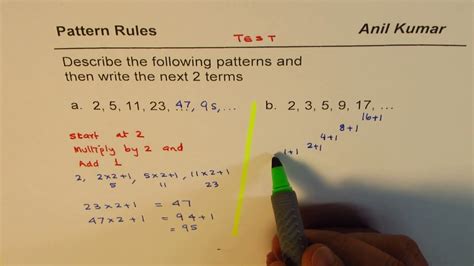 Pattern Rules
TEST
Anil Kumar
Describe the following patterns and
then write the next 2 terms
a. 2, 5, 11, 23, 47, 95, ...
start at 2
Multiply by 2 and
Add 1
2, 2x2+1, 5x2+1, 11x2+1
5 11 23
23x2+1 = 47
47x2+1 = 94+1
= 95
b. 2, 3, 5, 9, 17, ...
16+1
8+1
4+1
2+1
1+1